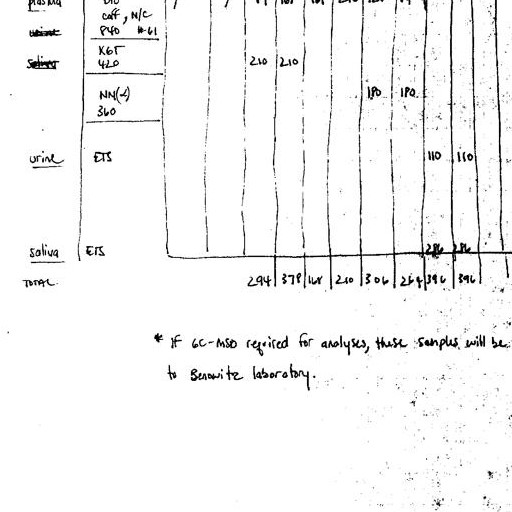 plasma
caff, N/C
840 #-61
KGT
420 210 210
NN(-)
360 180 180
urine ETS 110 110
saliva ETS 286 286
TOTAL 294 378 168 210 306 264 396 396
* If GC-MSD required for analyses, these samples will be
to Benowitz laboratory.